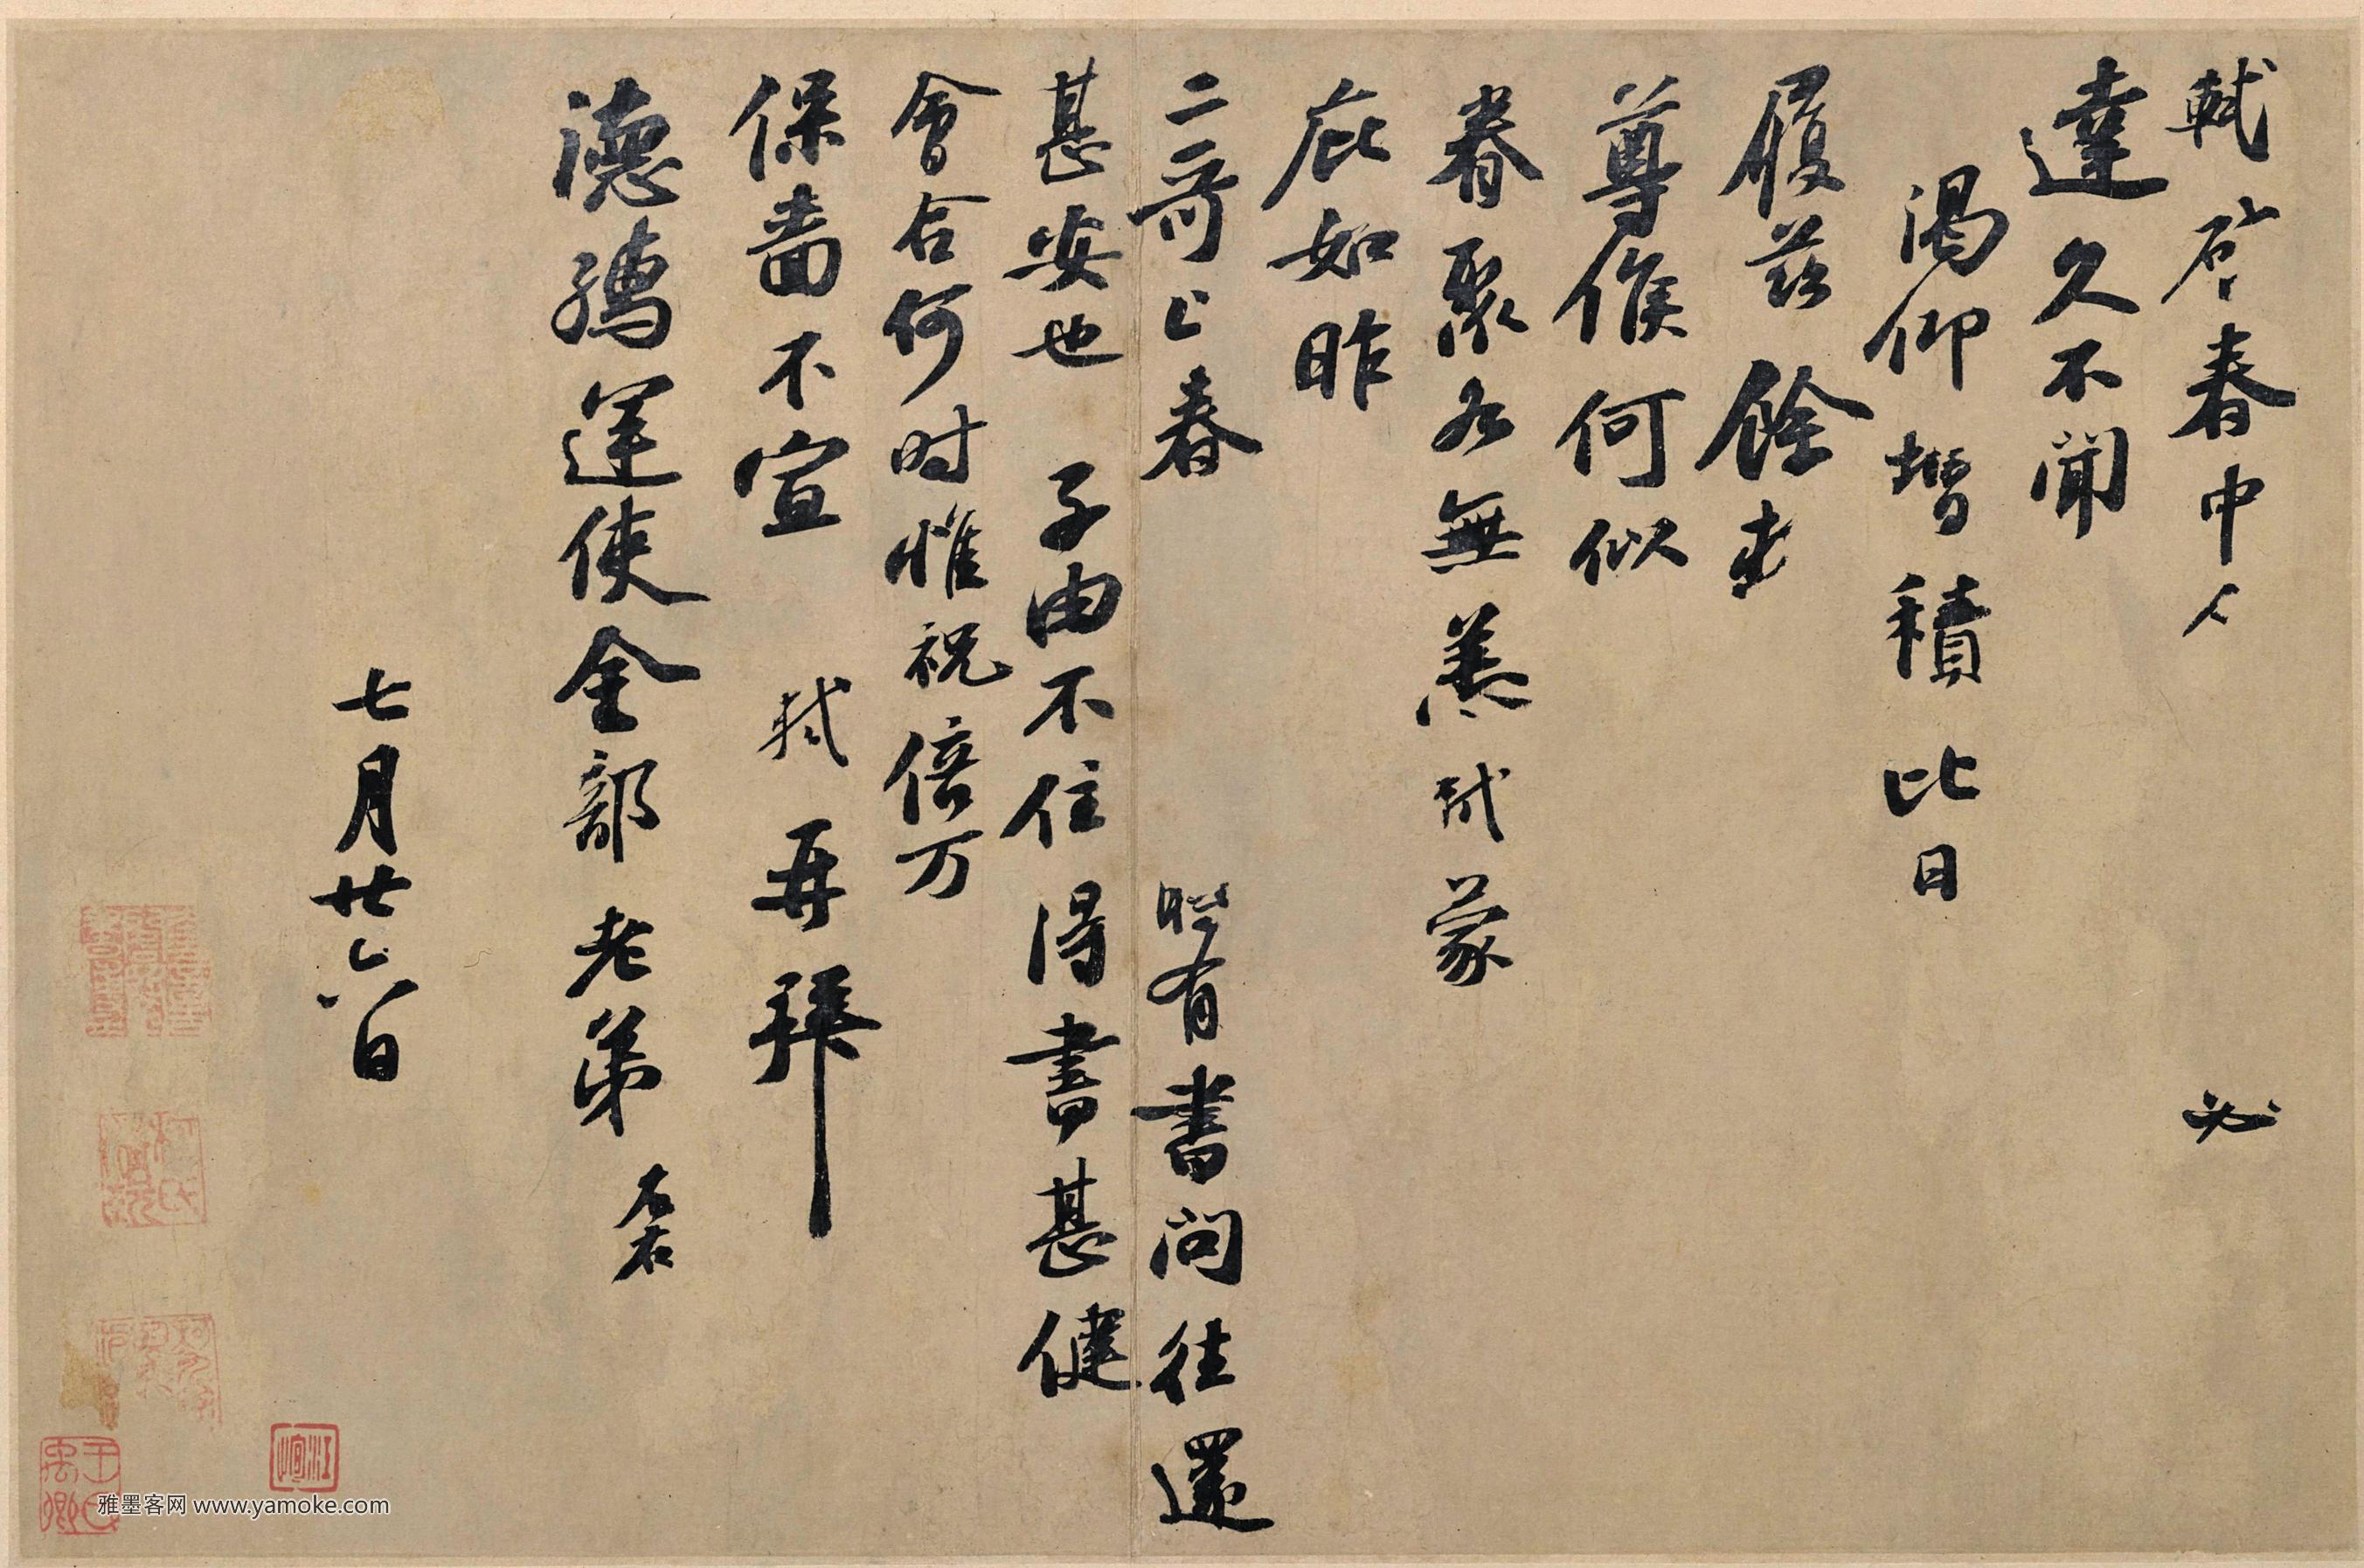 軾啓春中人 必
達久不聞
渴仰增積比日
履兹餘
尊候何似
眷聚各無恙軾蒙
庇如昨
二哥上春 時有書問往還
甚安也子由不住得書甚健
會合何时惟祝倍万
保嗇不宣 軾再拜
德孺運使金部老弟 左右
七月廿六日
江恂
雅墨客网 www.yamoke.com